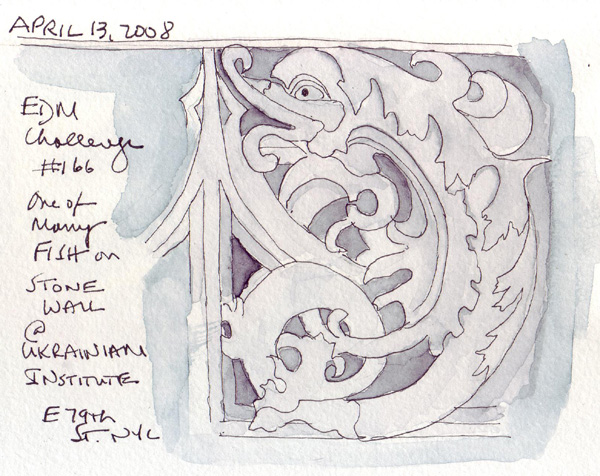 APRIL 13, 2008
EDM
Challenge
#166
One of
Many
FISH on
STONE
WALL
@
UKRAINIAN
INSTITUTE
E 79th
ST. NYC